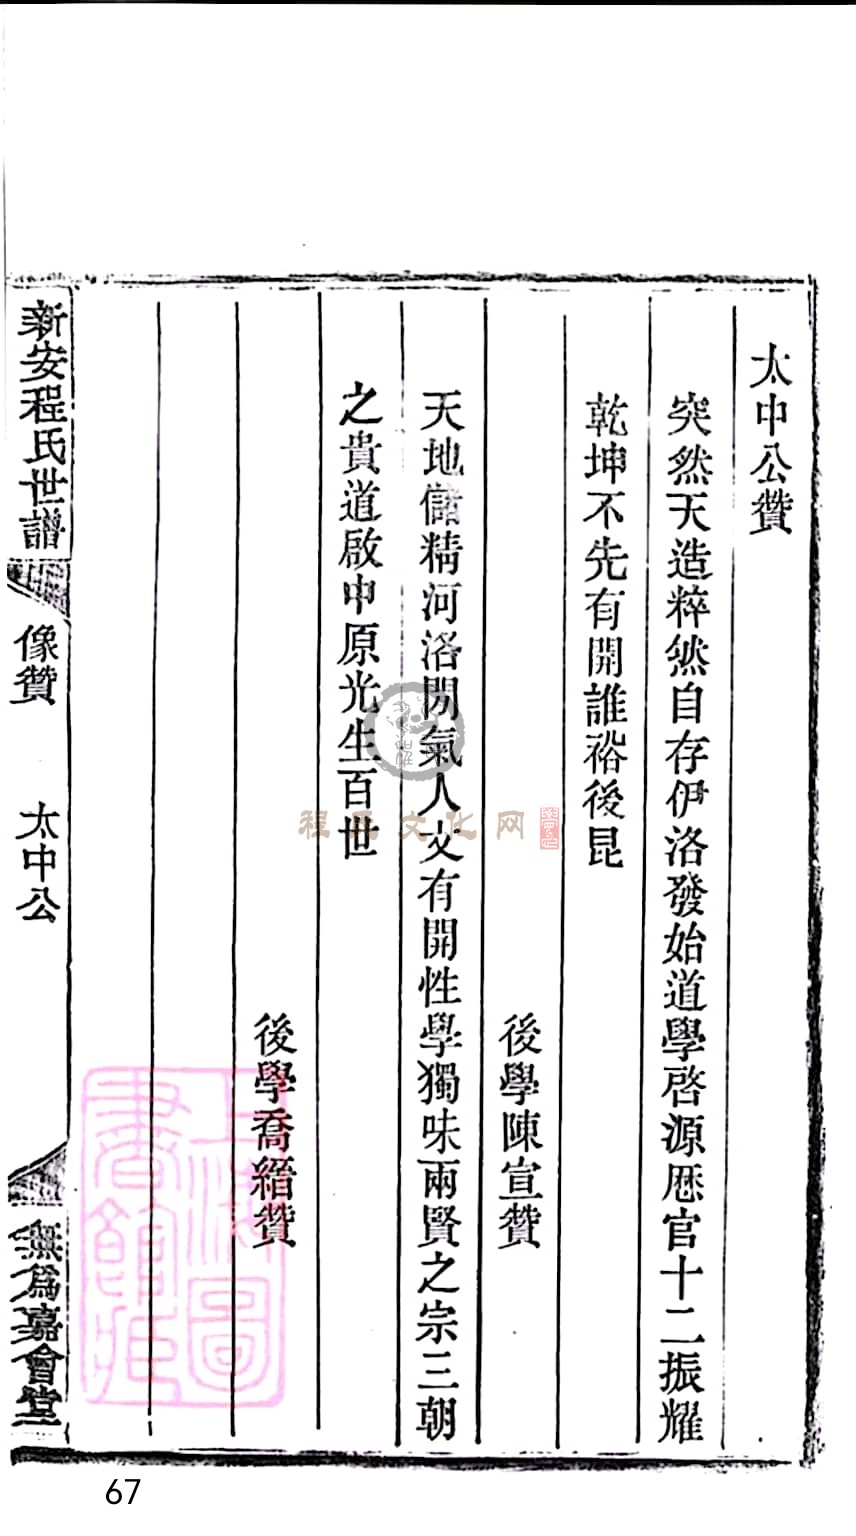 太中公贊
突然天造粹然自存伊洛發始道學啓源歷官十二振耀
乾坤不先有開誰裕後昆
後學陳宣贊
天地儲精河洛閒氣人文有開性學獨味兩賢之宗三朝
之貴道啟中原光生百世
後學喬縉贊
新安程氏世譜
像贊
太中公
無爲嘉會堂
程氏文化网
上海圖書館藏
67